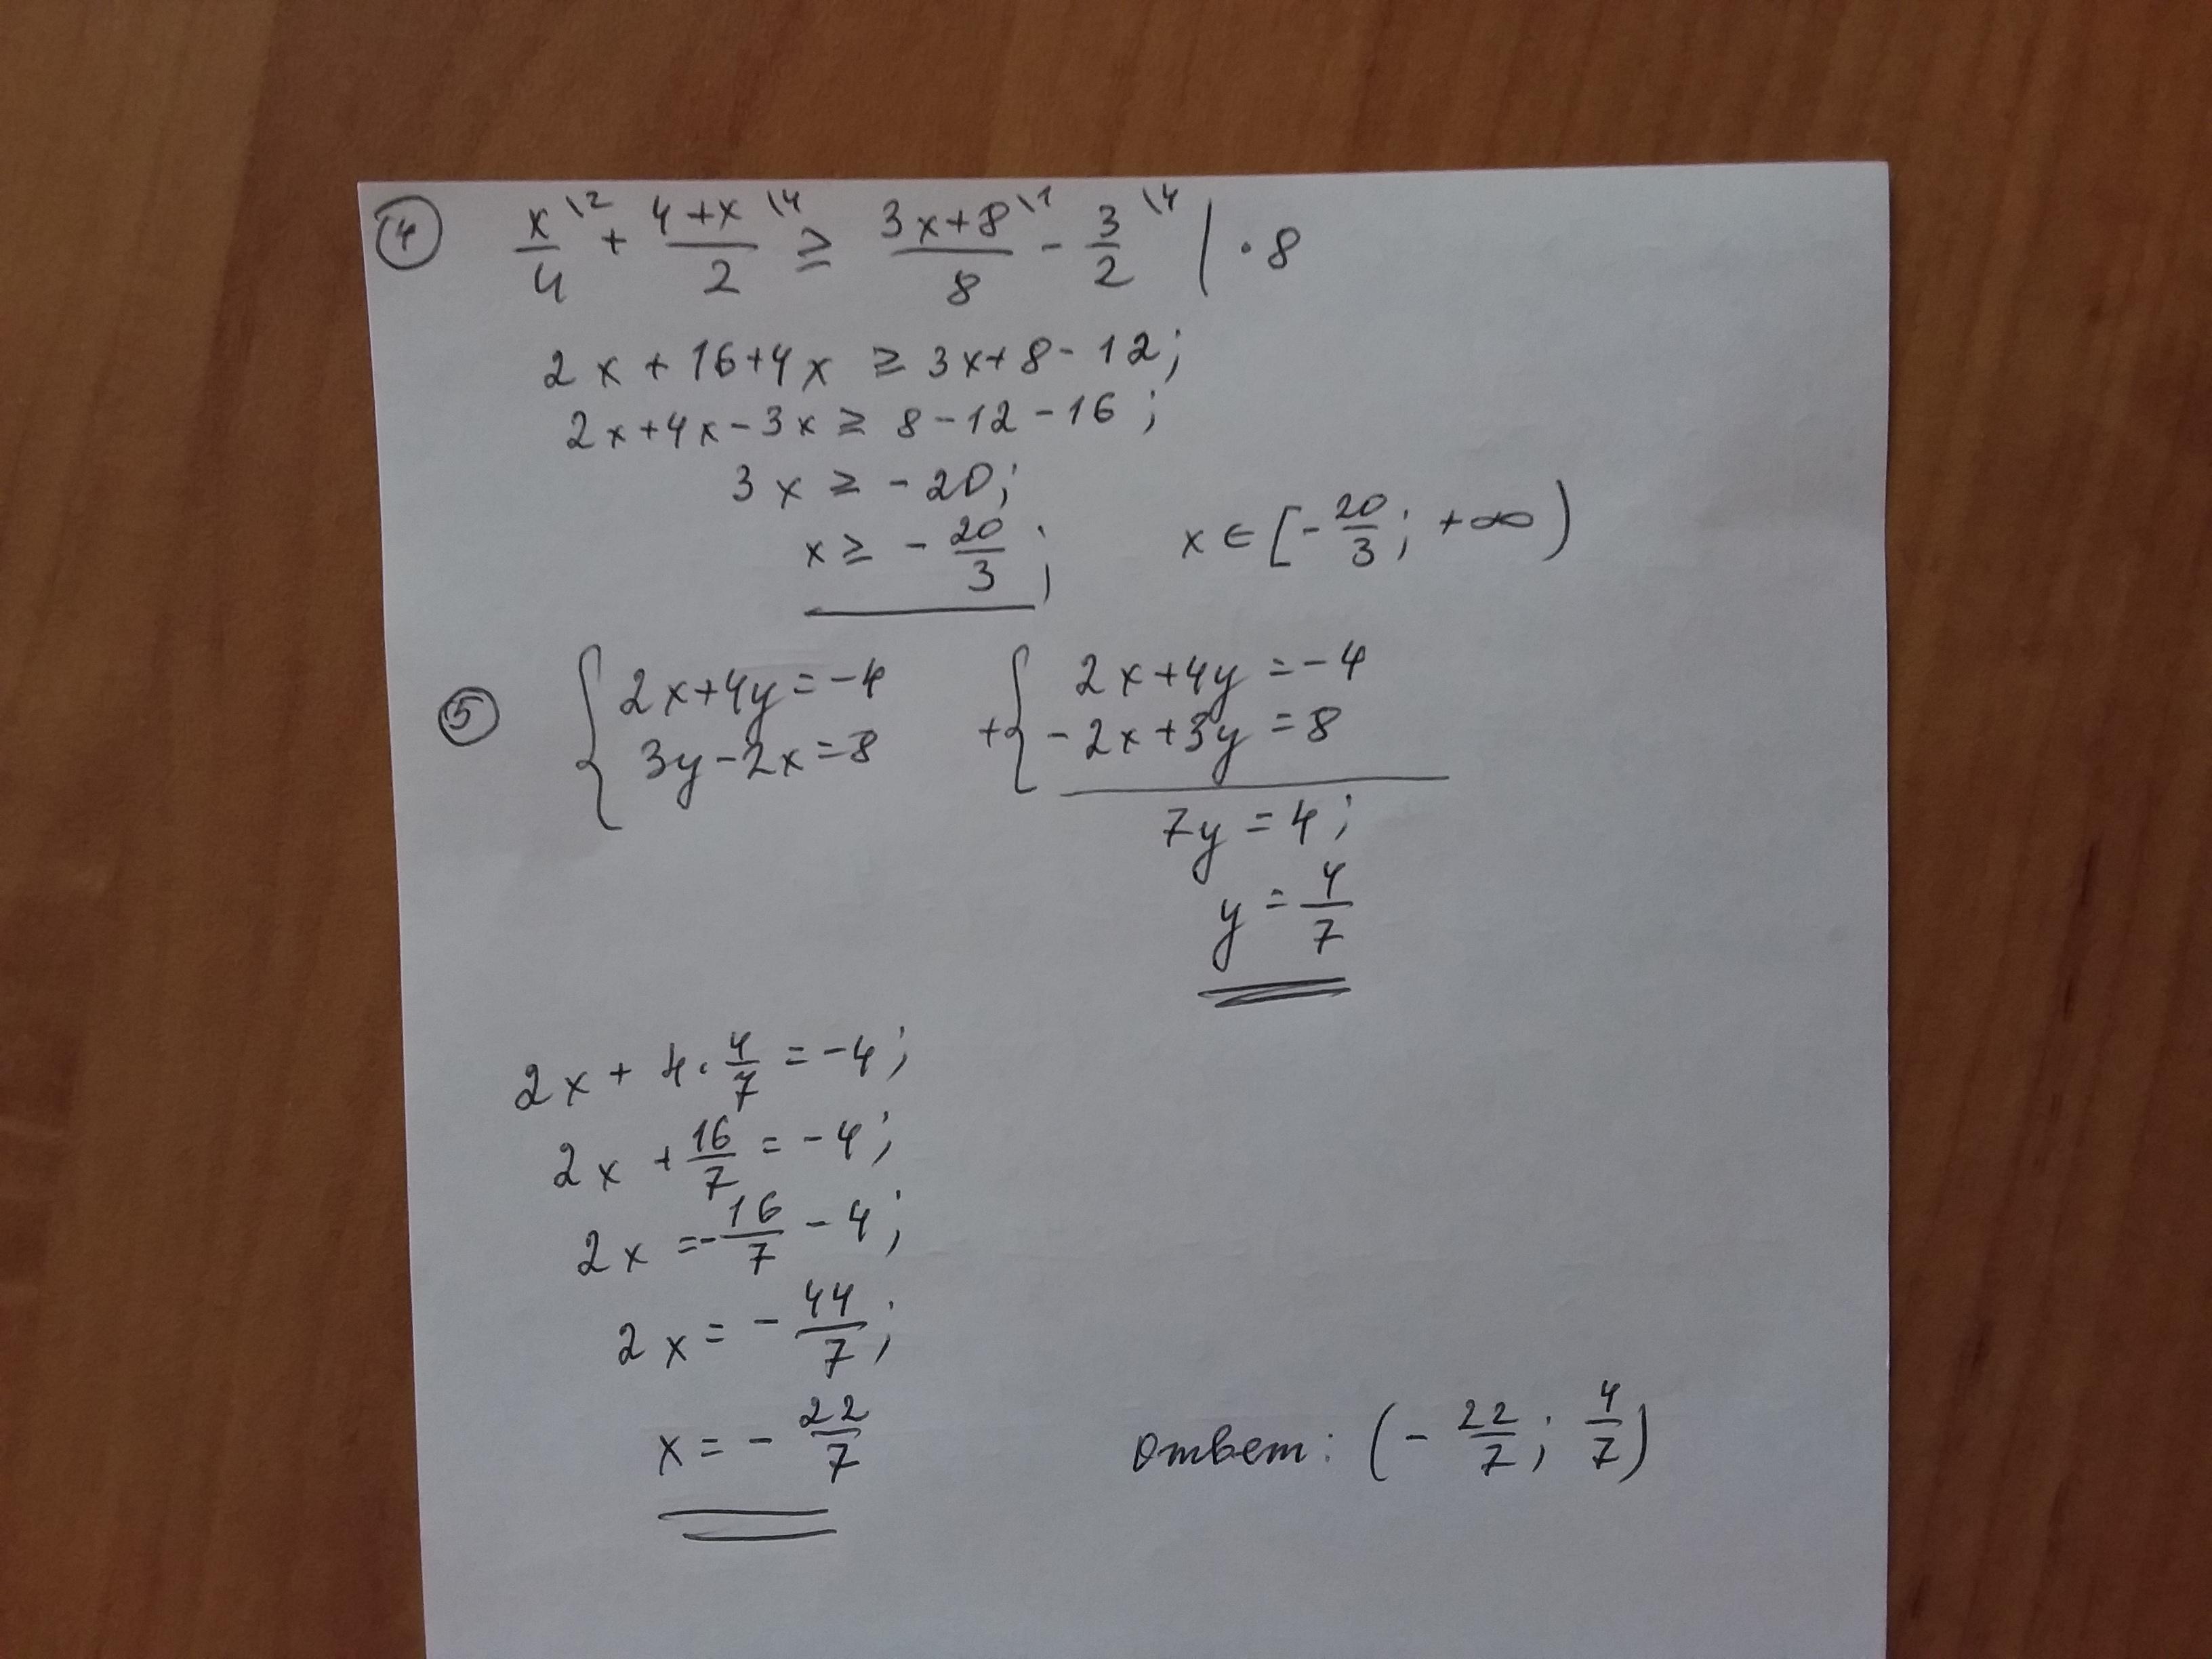 ④ x\2/4 + 4+x\4/2 ≥ 3x+8\1/8 - 3\4/2 | · 8
2x + 16+4x ≥ 3x+8-12;
2x+4x-3x ≥ 8-12-16;
3x ≥ -20;
x ≥ -20/3; x ∈ [-20/3; +∞)
⑤ { 2x+4y=-4
3y-2x=8
+{ 2x+4y=-4
-2x+3y=8
7y=4;
y=4/7
2x+4·4/7=-4;
2x+16/7=-4;
2x=-16/7-4;
2x=-44/7;
x=-22/7
ответ: (-22/7; 4/7)